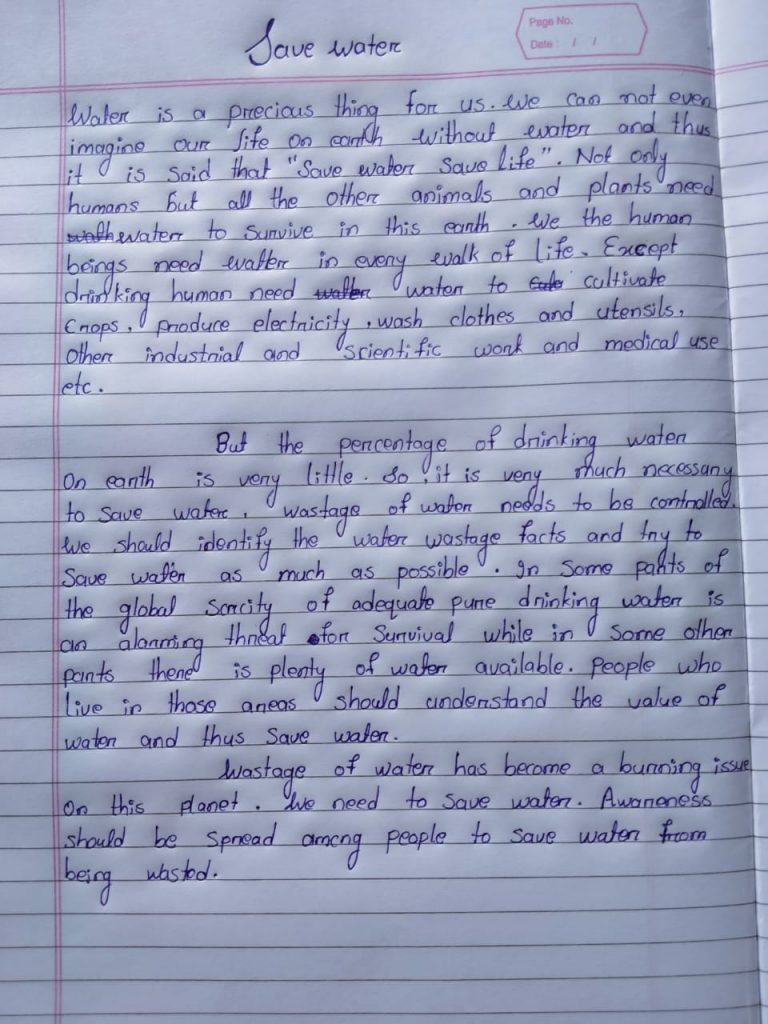 Page No.
Date : / /
Save water
Water is a precious thing for us. We can not even
imagine our life on earth without water and thus
it is said that "Save water Save life". Not only
humans but all the other animals and plants need
water to survive in this earth. We the human
beings need water in every walk of life. Except
drinking human need water to cultivate
crops, produce electricity, wash clothes and utensils,
other industrial and scientific work and medical use
etc.
But the percentage of drinking water
on earth is very little. So, it is very much necessary
to save water. Wastage of water needs to be controlled.
We should identify the water wastage facts and try to
save water as much as possible. In some parts of
the global scarcity of adequate pure drinking water is
an alarming threat for survival while in some other
parts there is plenty of water available. People who
live in those areas should understand the value of
water and thus save water.
Wastage of water has become a burning issue
on this planet. We need to save water. Awareness
should be spread among people to save water from
being wasted.